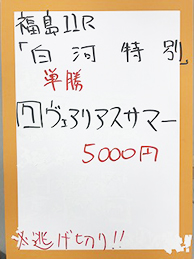 福島11R
「白河特別」
単勝
7ヴェアリアスサマー
5000円
必逃げ切り!!